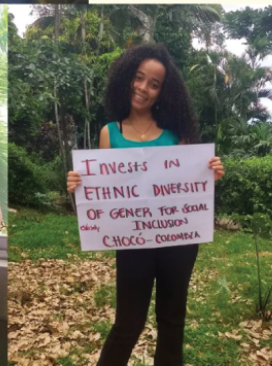 INVESTS IN
ETHNIC DIVERSITY
OF GENER FOR SOCIAL
INCLUSION
CHOCÓ - COLOMBIA